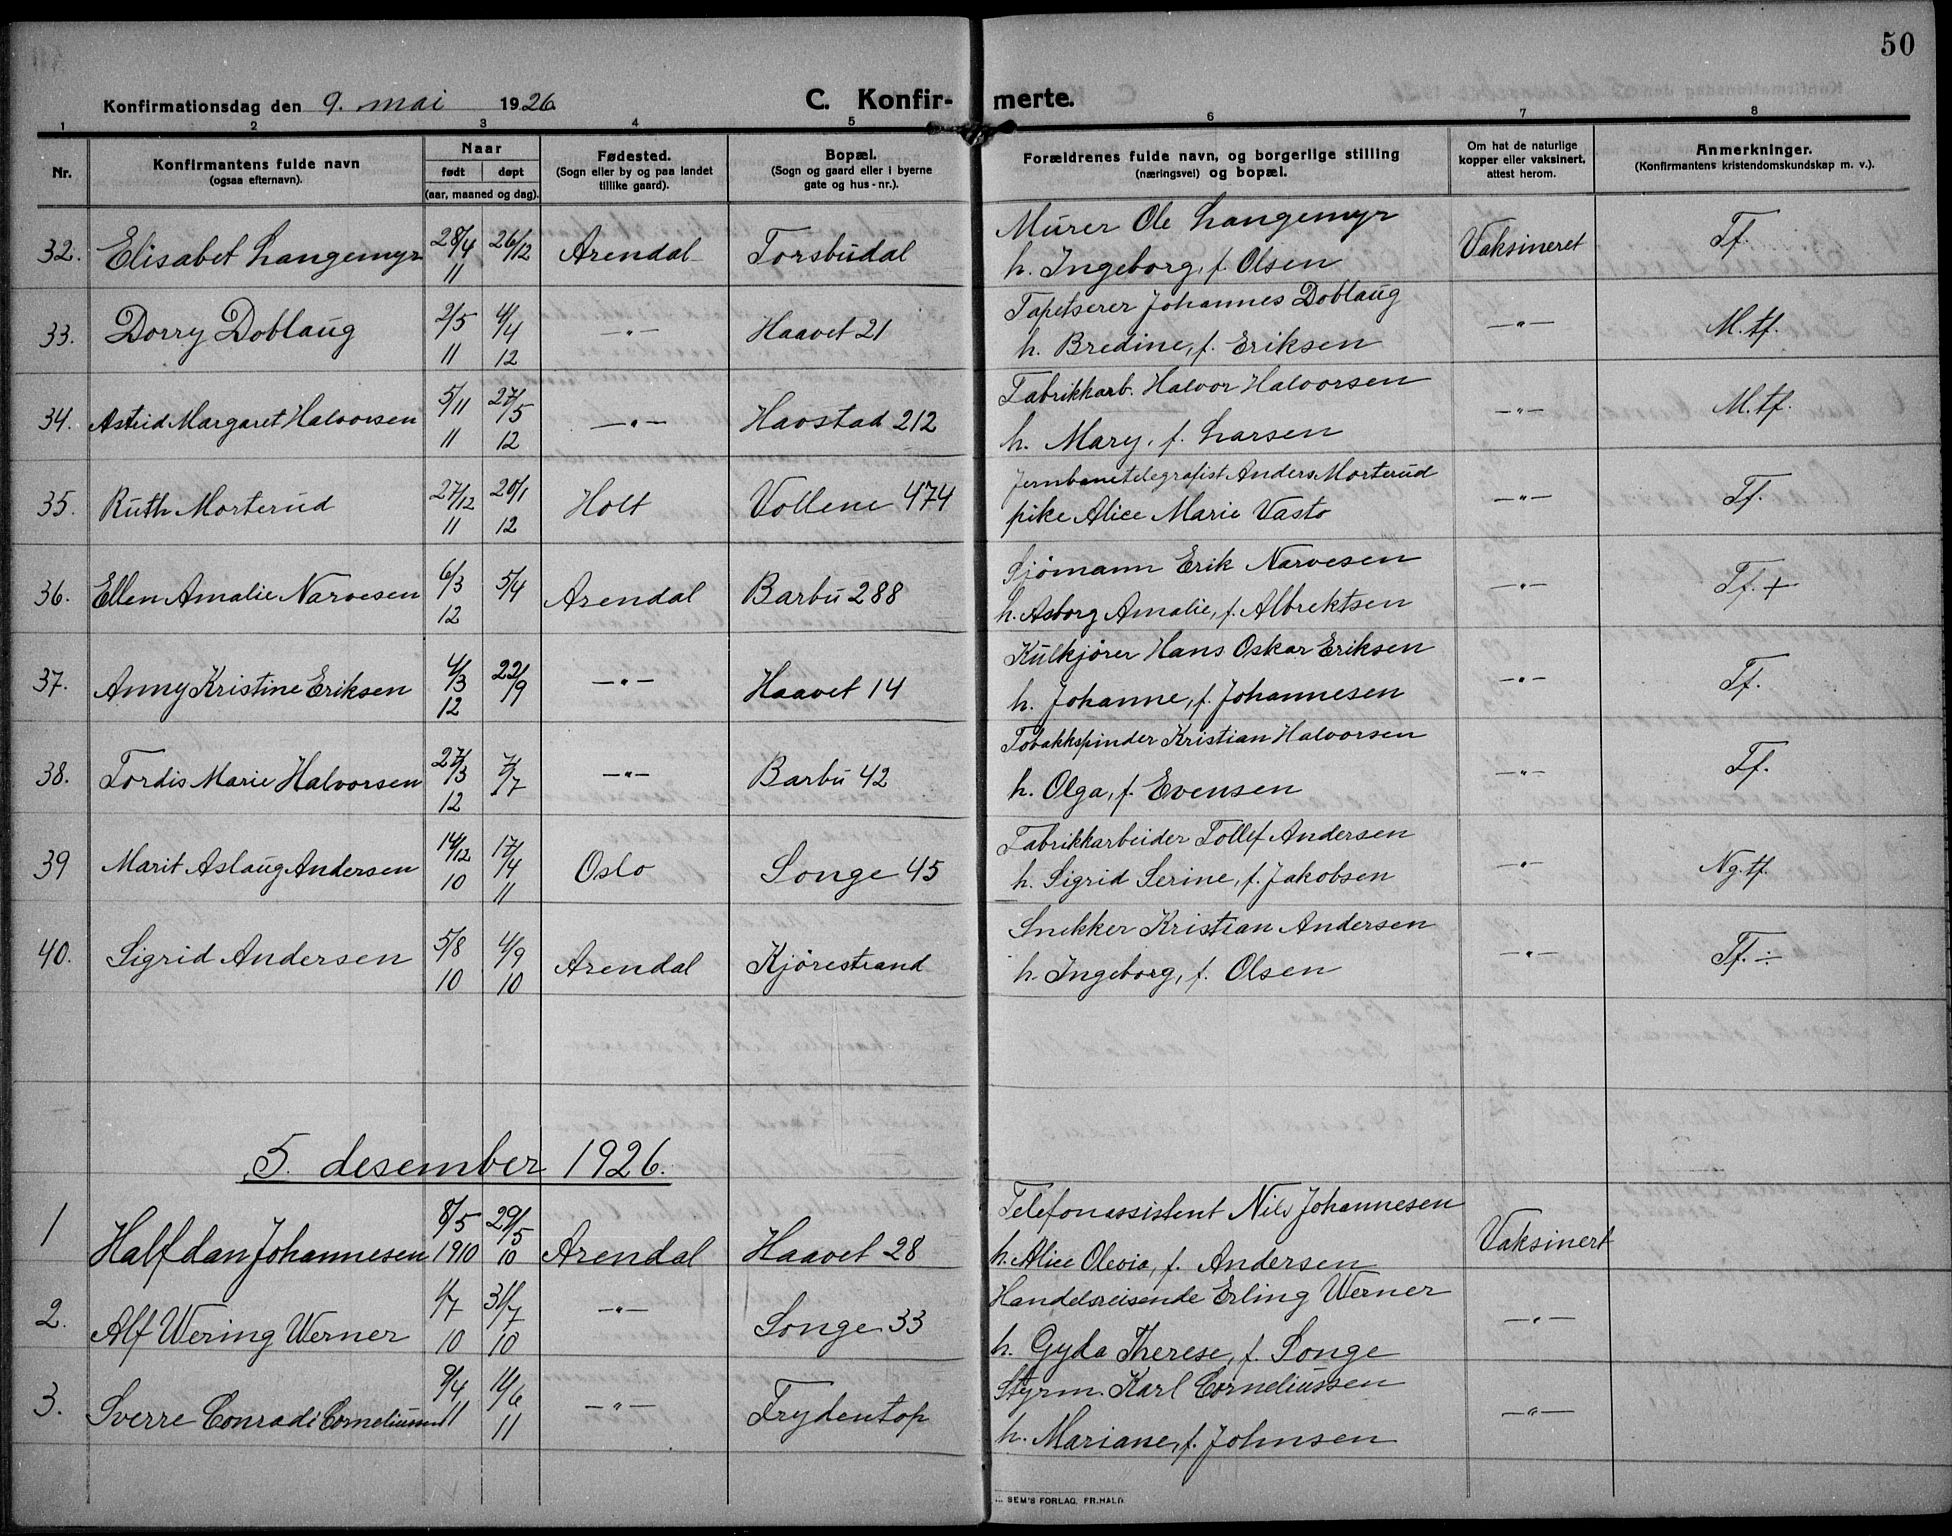 50
Konfirmationsdag den 9. mai 1926 C. Konfir- merte.
1 2 3 4 5 6 7 8
Nr. Konfirmantens fulde navn (ogsaa efternavn). Naar født døpt (aar, maaned og dag). Fødested. (Sogn eller by og paa landet tillike gaard). Bopæl. (Sogn og gaard eller i byerne gate og hus-nr.). Forældrenes fulde navn, og borgerlige stilling (næringsvei) og bopæl. Om hat de naturlige kopper eller vaksinert, attest herom. Anmerkninger. (Konfirmantens kristendomskundskap m. v.).
32. Elisabet Langemyr 28/4 11 26/12 Arendal Torsbudal Murer Ole Langemyr Vaksineret Tf.
h. Ingeborg, f. Olsen
33. Dorry Doblaug 2/5 11 4/4 12 —"— Haavet 21 Tapetserer Johannes Doblaug —"— M.tf.
h. Bredine, f. Eriksen
34. Astrid Margaret Halvorsen 5/11 11 27/5 12 —"— Havstad 212 Fabrikkarb. Halvor Halvorsen —"— M.tf.
h. Mary, f. Larsen
35. Ruth Morterud 27/12 11 20/1 12 Holt Vollene 474 Jernbanetelegrafist Anders Morterud —"— Tf.
pike Alice Marie Vasto
36. Ellen Amalie Narvesen 6/3 12 5/4 Arendal Barbu 288 Sjømann Erik Narvesen —"— Tf. +
h. Asborg Amalie, f. Albrektsen
37. Anny Kristine Eriksen 4/3 12 22/9 —"— Haavet 14 Kulkjører Hans Oskar Eriksen —"— Tf.
h. Johanne, f. Johannesen
38. Tordis Marie Halvorsen 27/3 12 7/7 —"— Barbu 42 Tobakkspinder Kristian Halvorsen —"— Tf.
h. Olga, f. Evensen
39 Marit Aslaug Andersen 14/12 10 17/14 11 Oslo Songe 45 Fabrikkarbeider Tollef Andersen —"— Ng.tf.
h. Sigrid Serine, f. Jakobsen
40. Sigrid Andersen 5/8 10 4/9 10 Arendal Kjørestrand Snekker Kristian Andersen —"— Tf. ÷
h. Ingeborg, f. Olsen
5. desember 1926.
1 Halfdan Johannesen 8/5 1910 29/5 10 Arendal Haavet 28 Telefonassistent Nils Johannesen Vaksinert
h. Alice Olevia, f. Andersen
2. Alf Wering Werner 1/7 10 31/7 10 —"— Songe 33 Handelsreisende Erling Werner —"—
h. Gyda Therese, f. Songe
3. Sverre Conradi 9/4 11 11/6 11 —"— Frydentop Styrm. Karl Corneliussen —"—
h. Mariane, f. Johnsen
SEM'S FORLAG, FR.HALD